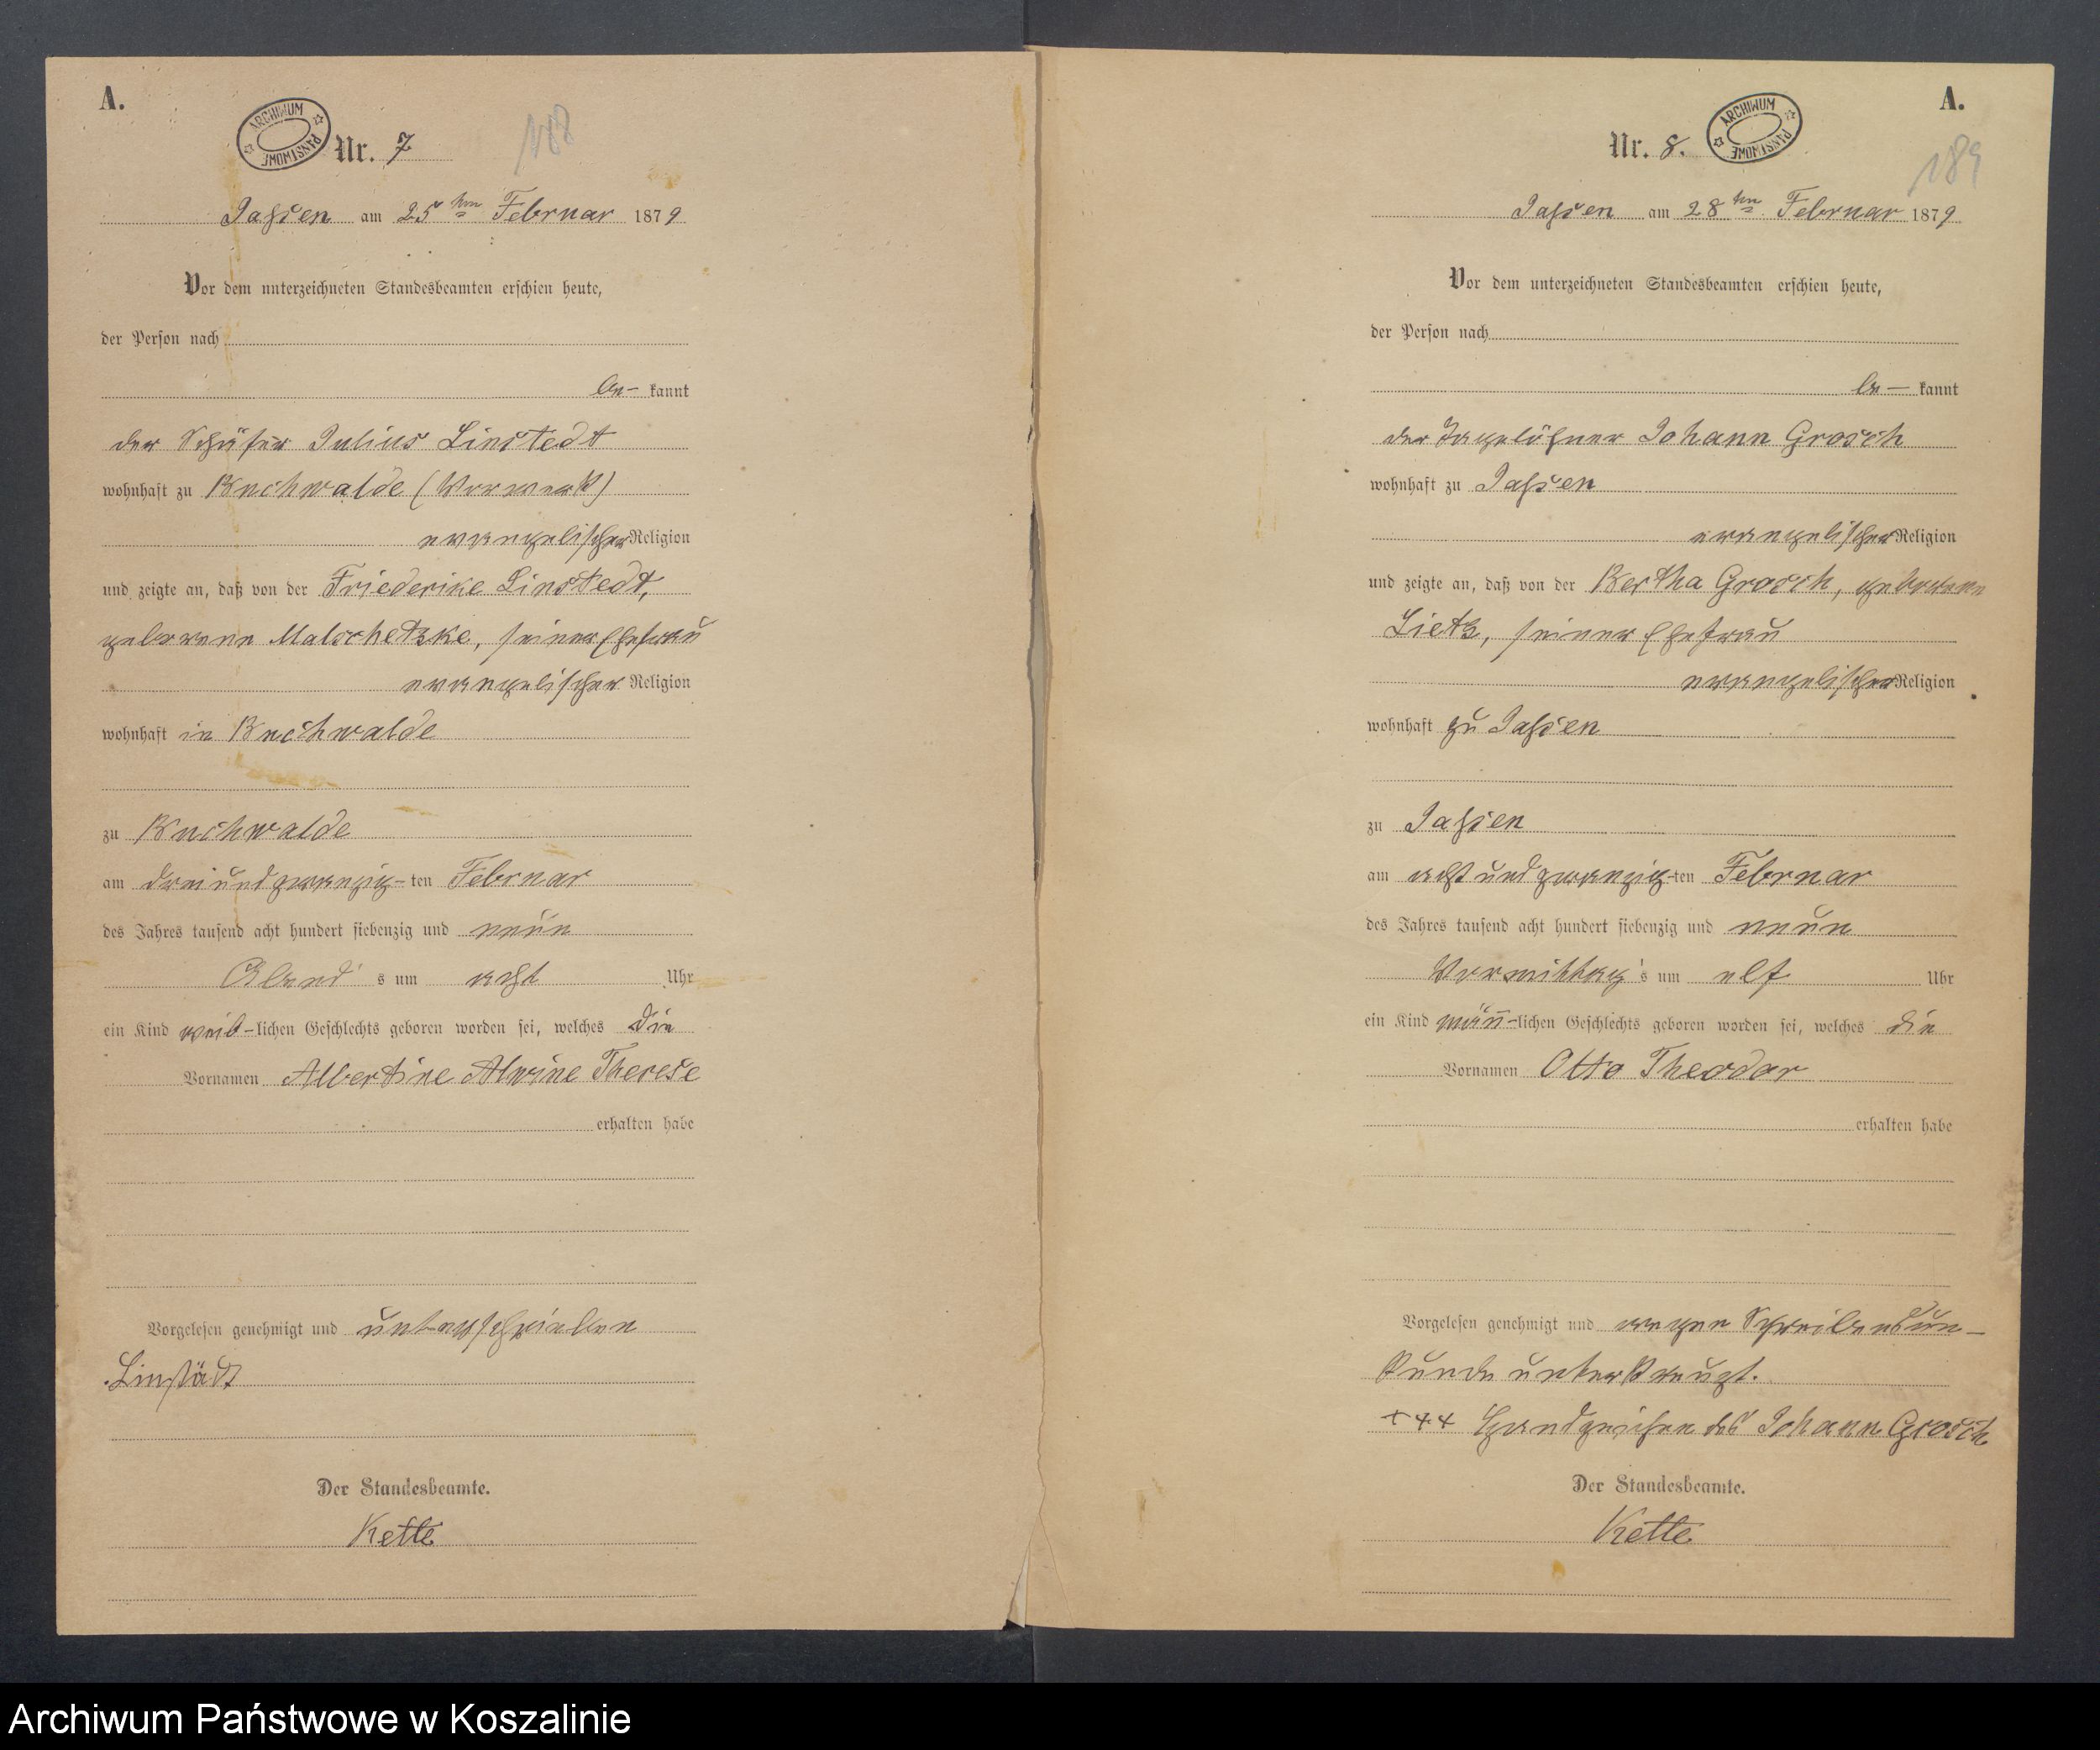 A.
ARCHIWUM PAŃSTWOWE
Nr. 7
188
Jassen am 25ten Februar 1879
Vor dem unterzeichneten Standesbeamten erschien heute,
der Person nach
be- kannt
der Schäfer Julius Linstedt
wohnhaft zu Buchwalde (Vorwerk)
evangelischer Religion
und zeigte an, daß von der Friederike Linstedt,
geborenen Malschetzke, seiner Ehefrau
evangelischer Religion
wohnhaft in Buchwalde
zu Buchwalde
am dreiundzwanzig-ten Februar
des Jahres tausend acht hundert siebenzig und neun
Abend s um acht Uhr
ein Kind weib-lichen Geschlechts geboren worden sei, welches die
Vornamen Albertine Alwine Therese
erhalten habe
Vorgelesen genehmigt und unterschrieben
Linstädt
Der Standesbeamte.
Kette
A.
ARCHIWUM PAŃSTWOWE
Nr. 8.
189
Jassen am 28ten Februar 1879
Vor dem unterzeichneten Standesbeamten erschien heute,
der Person nach
be- kannt
der Tagelöhner Johann Grosch
wohnhaft zu Jassen
evangelischer Religion
und zeigte an, daß von der Bertha Grosch, geborenen
Lietz, seiner Ehefrau
evangelischer Religion
wohnhaft zu Jassen
zu Jassen
am achtundzwanzig-ten Februar
des Jahres tausend acht hundert siebenzig und neun
Vormittag's um elf Uhr
ein Kind män̄-lichen Geschlechts geboren worden sei, welches die
Vornamen Otto Theodor
erhalten habe
Vorgelesen genehmigt und wegen Schreibensun-
kunde unterkreuzt.
+++ Handzeichen des Johann Grosch
Der Standesbeamte.
Kette
Archiwum Państwowe w Koszalinie